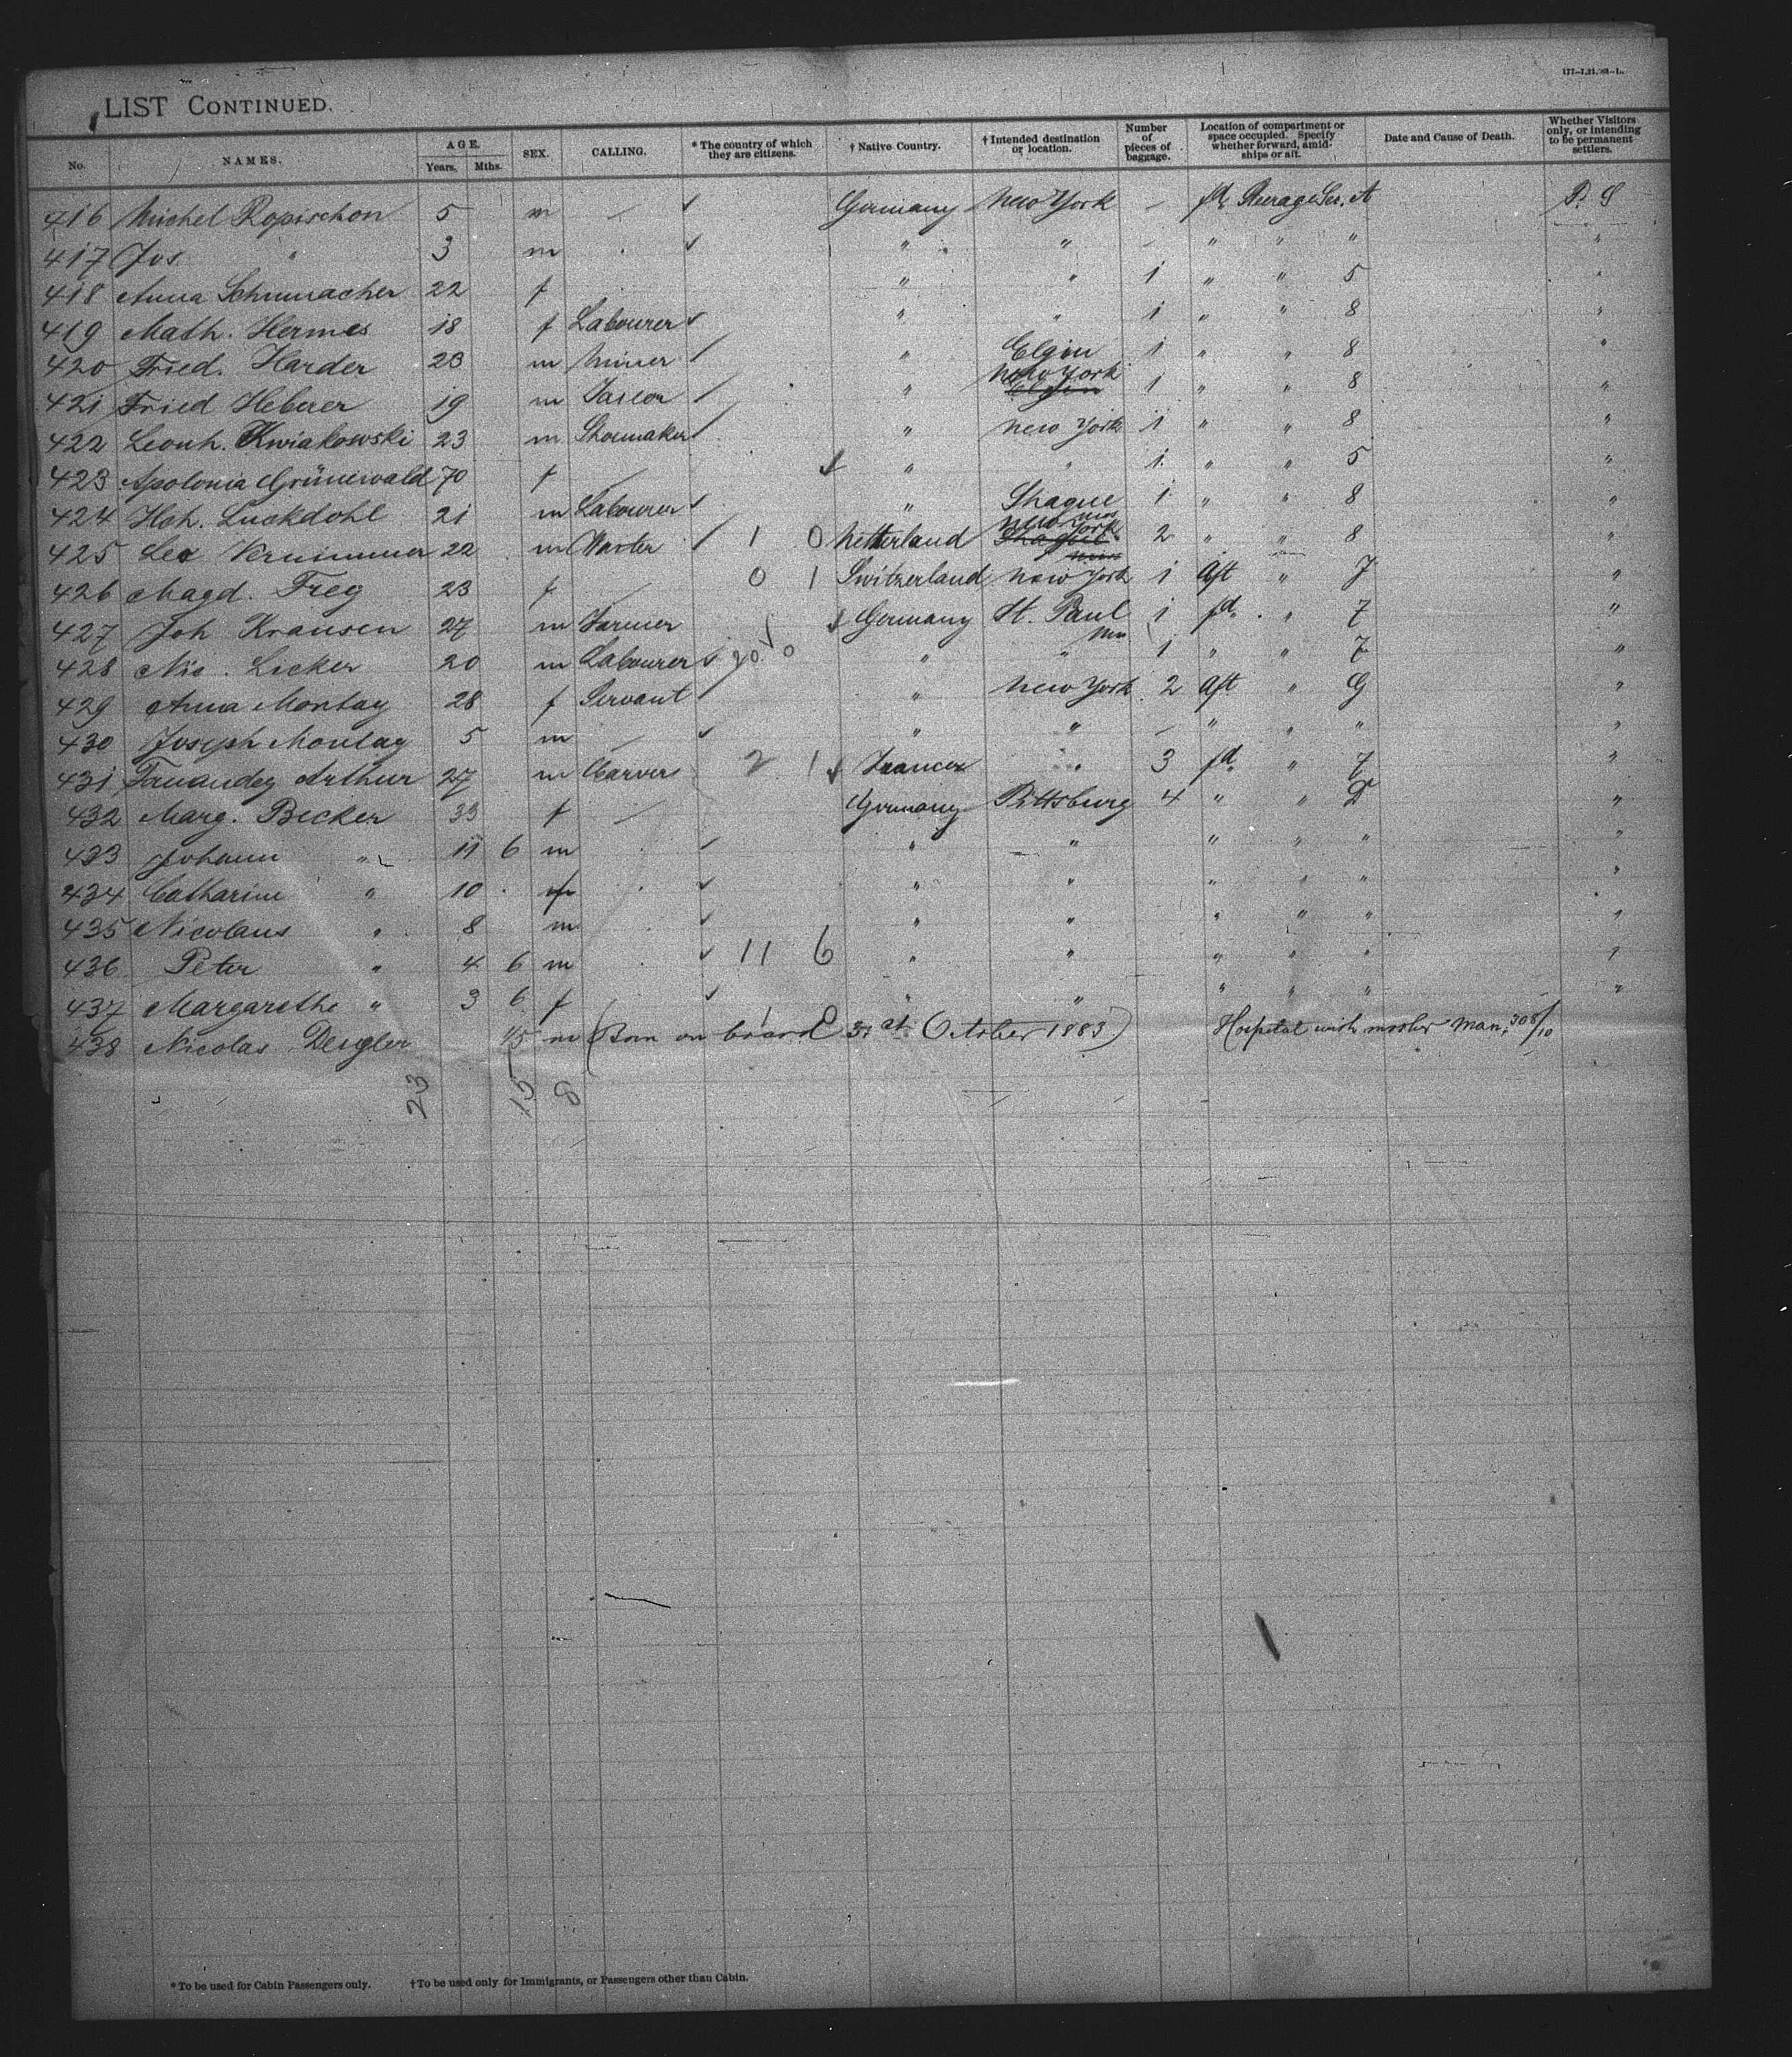 LIST CONTINUED.
No. NAMES. AGE. Years. Mths. SEX. CALLING. * The country of which they are citizens. † Native Country. † Intended destination or location. Number of pieces of baggage. Location of compartment or space occupied. Specify whether forward, amid-ships or aft. Date and Cause of Death. Whether Visitors only, or intending to be permanent settlers.
416 Michel Ropischon 5 m Germany New York — fd. Steerage Sec. A P. S
417 Jos. " 3 m " " — " " " "
418 Anna Schumacher 22 f " " 1 " " 5 "
419 Math. Hermes 18 f Labourer " " 1 " " 8 "
420 Fried. Harder 23 m Miner " Elgin 1 " " 8 "
421 Fried Heberer 19 m Tailor " New York 1 " " 8 "
422 Leonh. Kwiakowski 23 m Shoemaker " New York 1 " " 8 "
423 Apolonia Grünewald 70 f — " " 1 " " 5 "
424 Hch. Luckdohl 21 m Labourer " 1 " " 8 "
425 Leo 22 m 1 0 Netterland New York 2 " " 8 "
426 Magd. Frey 23 f — 0 1 Switzerland New York 1 Aft " J "
427 Joh Krausen 27 m Farmer Germany St. Paul 1 fd. " 7 "
428 Nic. Licker 20 m Labourer 20 0 " " Min 1 " " 7 "
429 Anna Montag 28 f Servant " New York 2 Aft " G "
430 Joseph Montag 5 m — " " — " " " "
431 Arthur 27 m Carver 2 1 " 3 fd. " 7 "
432 Marg. Becker 33 f — Germany Pittsburg 4 " " D "
433 Johann " 11 6 m " " " " " "
434 Catharine " 10 f " " " " " "
435 Nicolaus " 8 m " " " " " "
436 Peter " 4 6 m 11 6 " " " " " "
437 Margarethe " 3 6 f " " " " " "
438 Nicolas Deigler 1/5 m (Born on board 31st October 1883) Hospital with mother 308/10
23 15 8
* To be used for Cabin Passengers only. † To be used only for Immigrants, or Passengers other than Cabin.